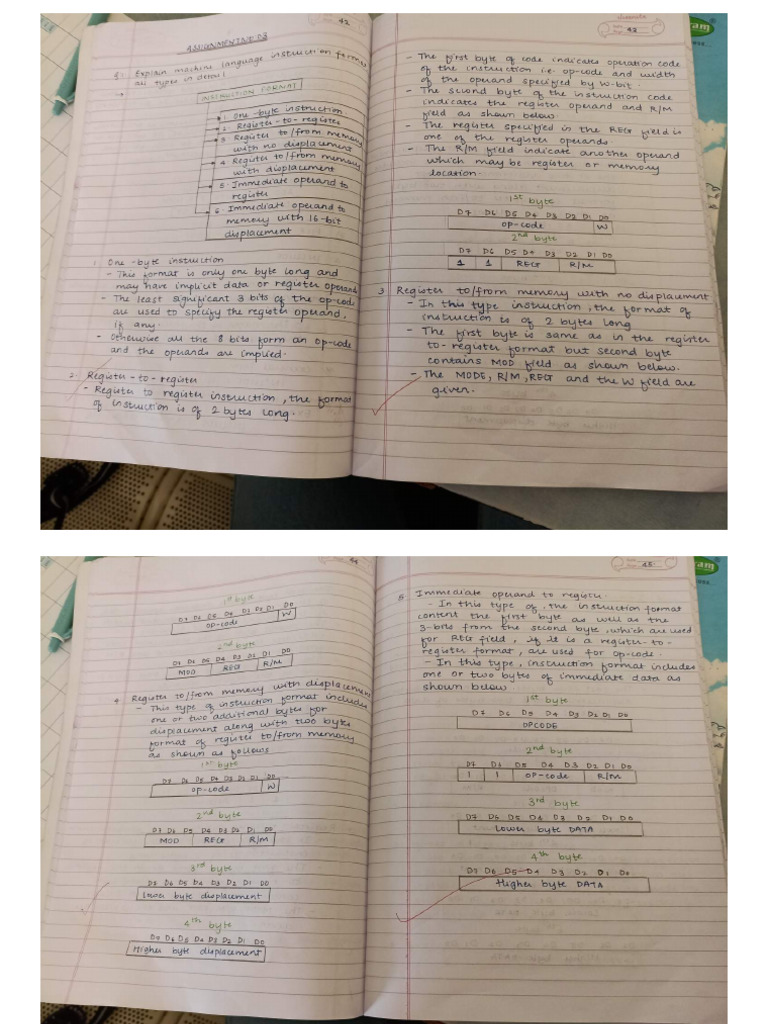 42
ASSIGNMENT NO 3
Q.1 Explain machine language instruction format
all types in detail
→
INSTRUCTION FORMAT
1. One-byte instruction
2. Register-to-register
3 Register to/from memory
with no displacement
4 Register to/from memory
with displacement
5. Immediate operand to
register
6. Immediate operand to
memory with 16-bit
displacement
1 One-byte instruction
- This format is only one byte long and
may have implicit data or register operands
- The least significant 3 bits of the op-code
are used to specify the register operand,
if any.
- Otherwise all the 8 bits form an op-code
and the operands are implied.
2. Register-to-register
- Register to register instruction, the format
of instruction is of 2 bytes long.
43
- The first byte of code indicates operation code
of the instruction i.e. op-code and width
of the operand specified by W-bit.
- The second byte of the instruction code
indicates the register operand and R/M
field as shown below.
- The register specified in the REG field is
one of the register operands.
- The R/M field indicate another operand
which may be register or memory
location.
1st byte
D7 D6 D5 D4 D3 D2 D1 D0
op-code W
2nd byte
D7 D6 D5 D4 D3 D2 D1 D0
1 1 REG R/M
3 Register to/from memory with no displacement
- In this type instruction, the format of
instruction is of 2 bytes long
- The first byte is same as in the register
to-register format but second byte
contains MOD field as shown below.
- The MODE, R/M, REG and the W field are
given.
44
1st byte
D7 D6 D5 D4 D3 D2 D1 D0
op-code W
2nd byte
D7 D6 D5 D4 D3 D2 D1 D0
MOD REG R/M
4 Register to/from memory with displacement
- This type of instruction format includes
one or two additional bytes for
displacement along with two bytes
format of register to/from memory
as shown as follows
1st byte
D7 D6 D5 D4 D3 D2 D1 D0
op-code W
2nd byte
D7 D6 D5 D4 D3 D2 D1 D0
MOD REG R/M
3rd byte
D7 D6 D5 D4 D3 D2 D1 D0
Lower byte displacement
4th byte
D7 D6 D5 D4 D3 D2 D1 D0
Higher byte displacement
45
5 Immediate operand to register
- In this type of, the instruction format
content the first byte as well as the
3-bits from the second byte, which are used
for REG field, if it is a register-to-
register format, are used for op-code.
- In this type, instruction format includes
one or two bytes of immediate data as
shown below
1st byte
D7 D6 D5 D4 D3 D2 D1 D0
OPCODE
2nd byte
D7 D6 D5 D4 D3 D2 D1 D0
1 1 op-code R/M
3rd byte
D7 D6 D5 D4 D3 D2 D1 D0
Lower byte DATA
4th byte
D7 D6 D5 D4 D3 D2 D1 D0
Higher byte DATA